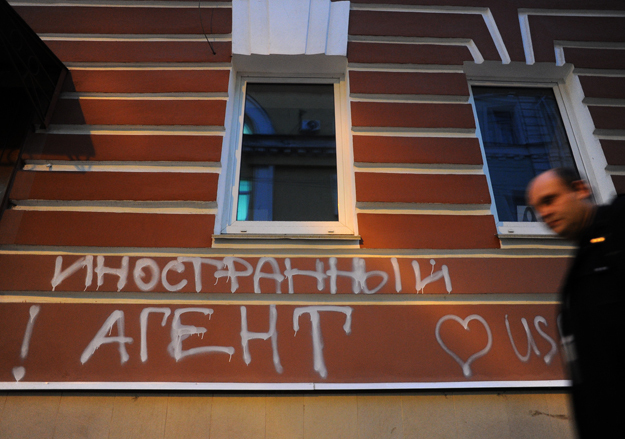 ИНОСТРАННЫЙ
! АГЕНТ ♡ US